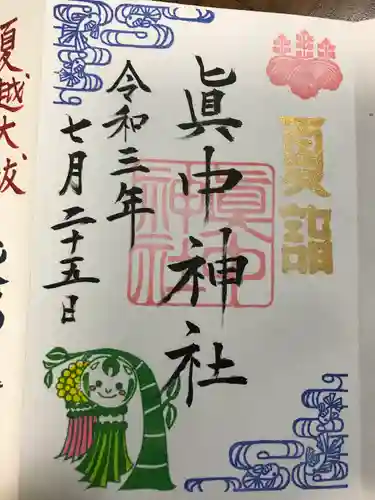 夏詣
眞中神社
眞中神社
令和三年
七月二十五日
夏越大祓